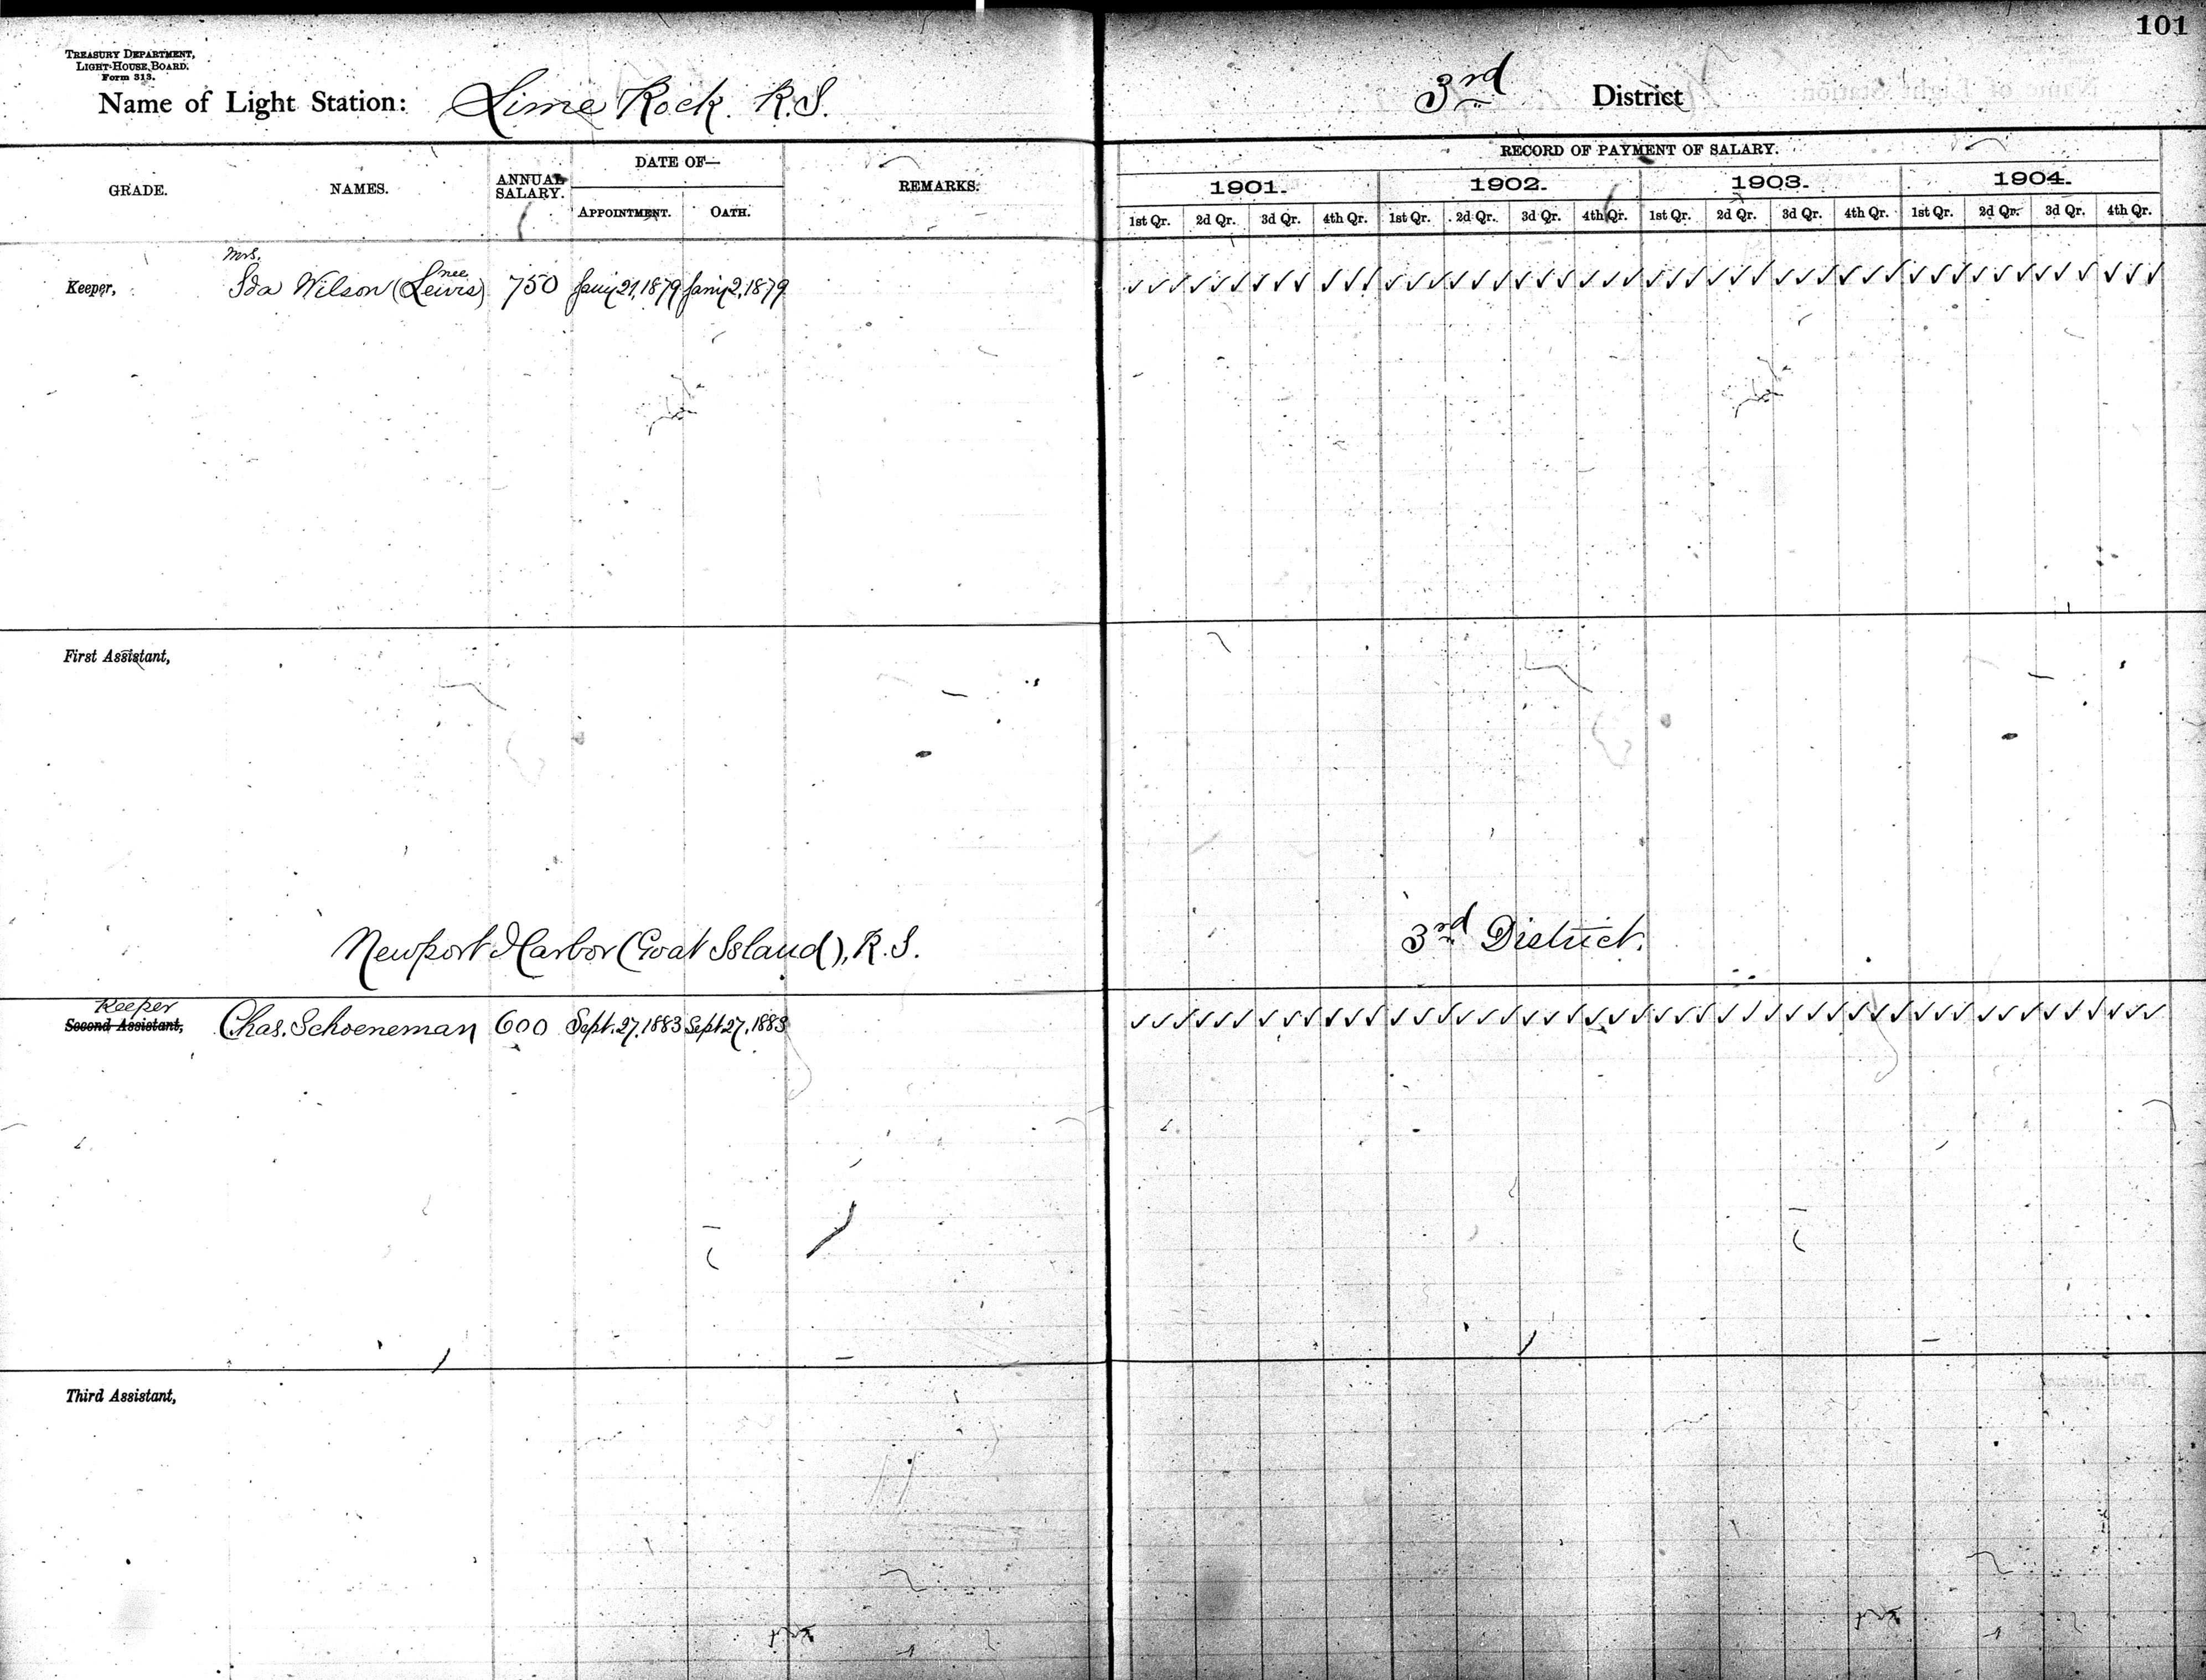 101
TREASURY DEPARTMENT,
LIGHT-HOUSE BOARD.
Form 313.
Name of Light Station: Lime Rock. R.I. 3rd District
GRADE. NAMES. ANNUAL SALARY. DATE OF— REMARKS. RECORD OF PAYMENT OF SALARY.
1901. 1902. 1903. 1904.
APPOINTMENT. OATH. 1st Qr. 2d Qr. 3d Qr. 4th Qr. 1st Qr. 2d Qr. 3d Qr. 4th Qr. 1st Qr. 2d Qr. 3d Qr. 4th Qr. 1st Qr. 2d Qr. 3d Qr. 4th Qr.
Mrs.
nee
Keeper, Ida Wilson (Lewis) 750 Jany 21, 1879 1879
First Assistant,
Newport Harbor (Goat Island), R.I. 3rd District.
Keeper
Second Assistant, Chas. Schoeneman 600 Sept. 27, 1883 Sept. 27, 1883
Third Assistant,